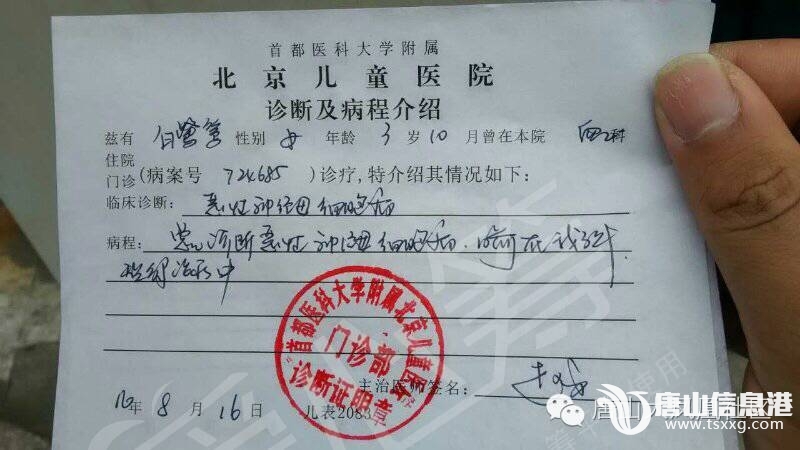 首都医科大学附属
北京儿童医院
诊断及病程介绍
兹有 白鹭 性别 女 年龄 3 岁 10 月曾在本院
住院
门诊 (病案号 724685 )诊疗,特介绍其情况如下:
临床诊断: 恶性神经母细胞瘤
病程: 诊断恶性神经母细胞瘤. 在我
治疗中
首都医科大学附属北京儿童医院
门诊部
诊断证明章
主治医师签名:
年 8 月 16 日 儿表2083
唐山信息港
www.tsxxg.com